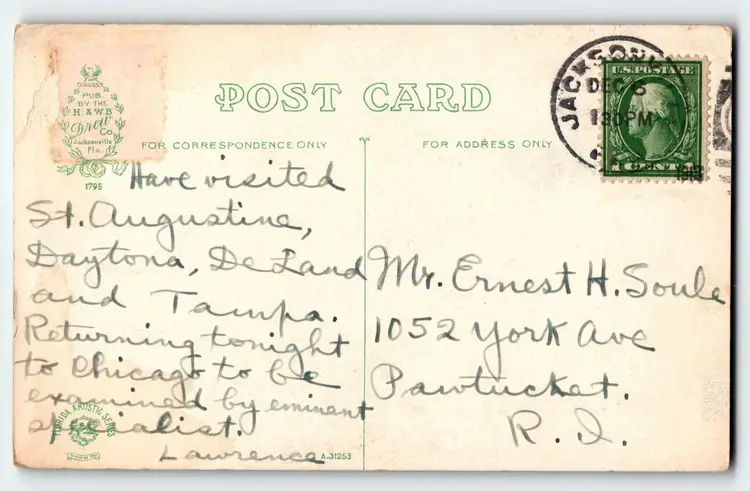 POST CARD
PUB.
BY THE
H. & W.B.
Drew
Co.
Jacksonville
Fla.
1795
FOR CORRESPONDENCE ONLY
FOR ADDRESS ONLY
JACKSONV
DEC 6
130PM
U.S. POSTAGE
Have visited
St. Augustine,
Daytona, DeLand
and Tampa.
Returning tonight
to Chicago to be
examined by eminent
specialist.
Lawrence
Mr. Ernest H. Soule
1052 York Ave
Pawtucket.
R. I.
FLORIDA ARTISTIC SERIES
A-31253